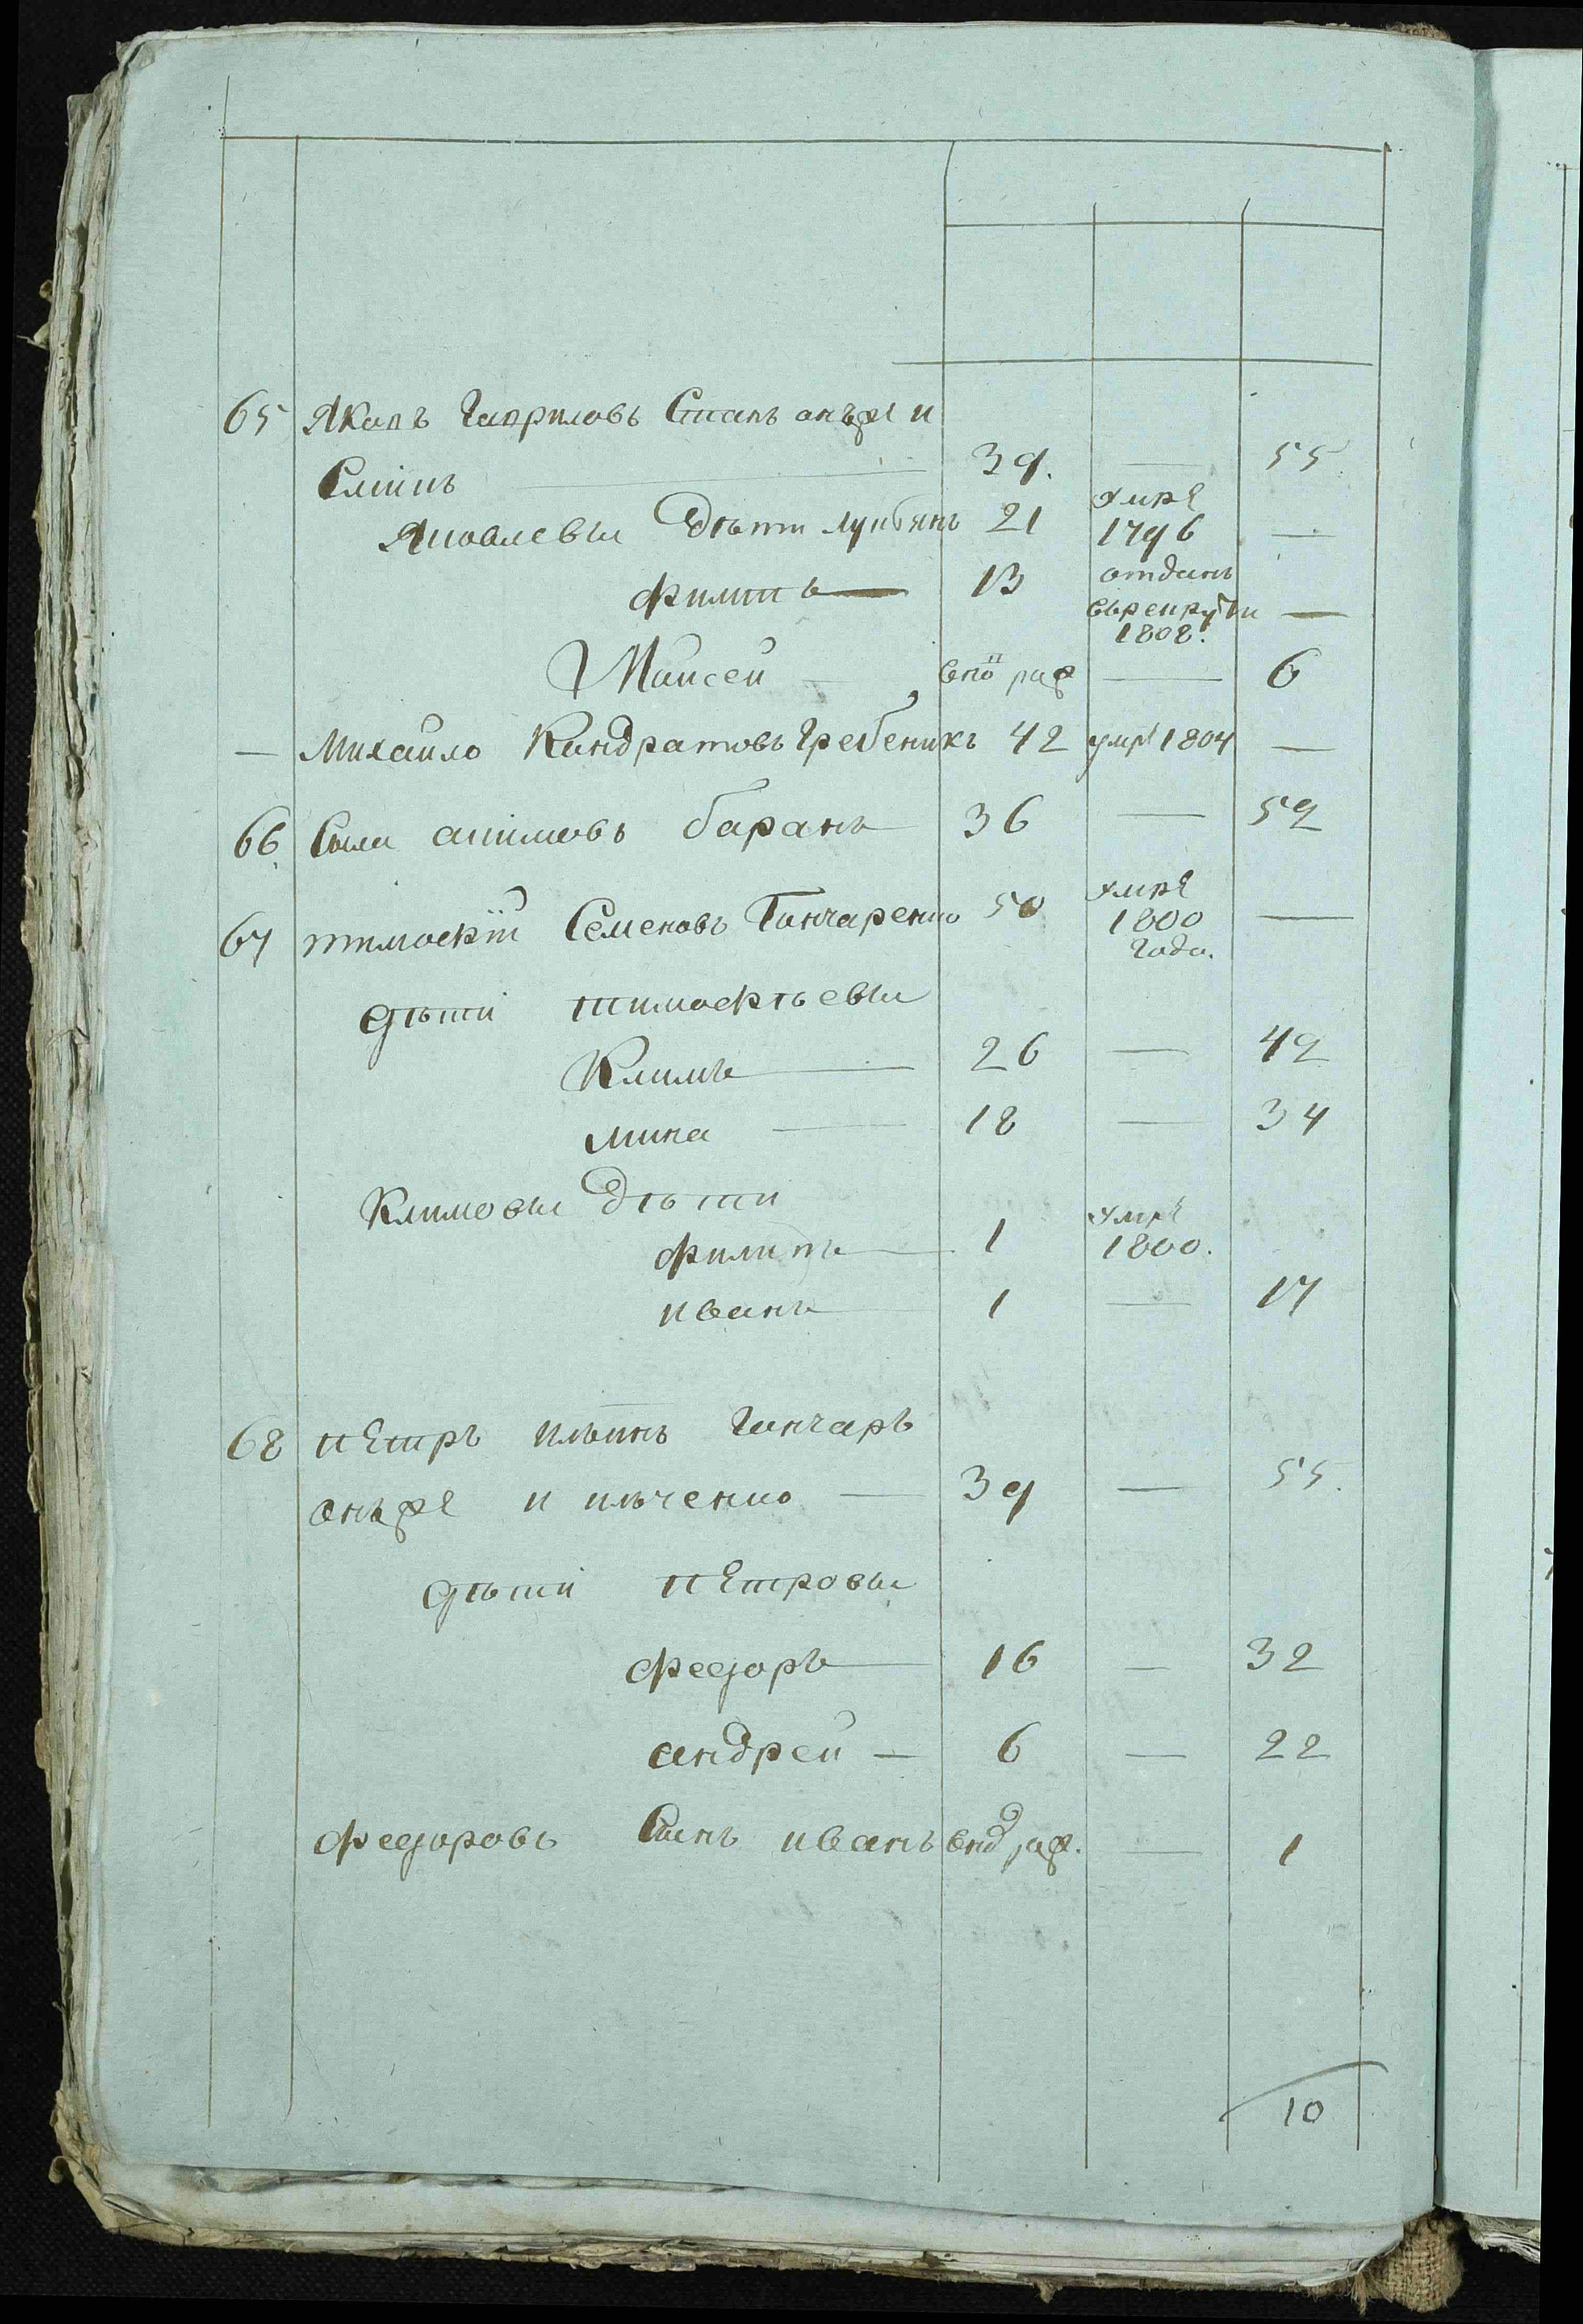 65 Якавъ Гавриловъ Стань онъже и
Слипъ — 39. — 55.
Яковлевы Дѣти лукбянъ 21 умре 1796 —
Филипъ — 13 отданъ върекруты 1808. —
Моисей — впо рѣз — 6
— Михайло Кандратовъ Гребеникъ 42 умре 1804 —
66 Сила акимовъ баранъ 36 — 52
67 тимофїй Семеновъ Ганчаренко 50 умре 1800 Года. —
дѣти тимофѣевы
Климъ — 26 — 42
мина — 18 — 34
Климовы Дѣти
филипъ — 1 умре 1800.
иванъ — 1 — 17
68 петръ ильинъ Ганчаръ
онъже и ильченко — 39 — 55.
дѣти петровы
федоръ — 16 — 32
андрей — 6 — 22
федоровъ Сынъ иванъ — 1
10